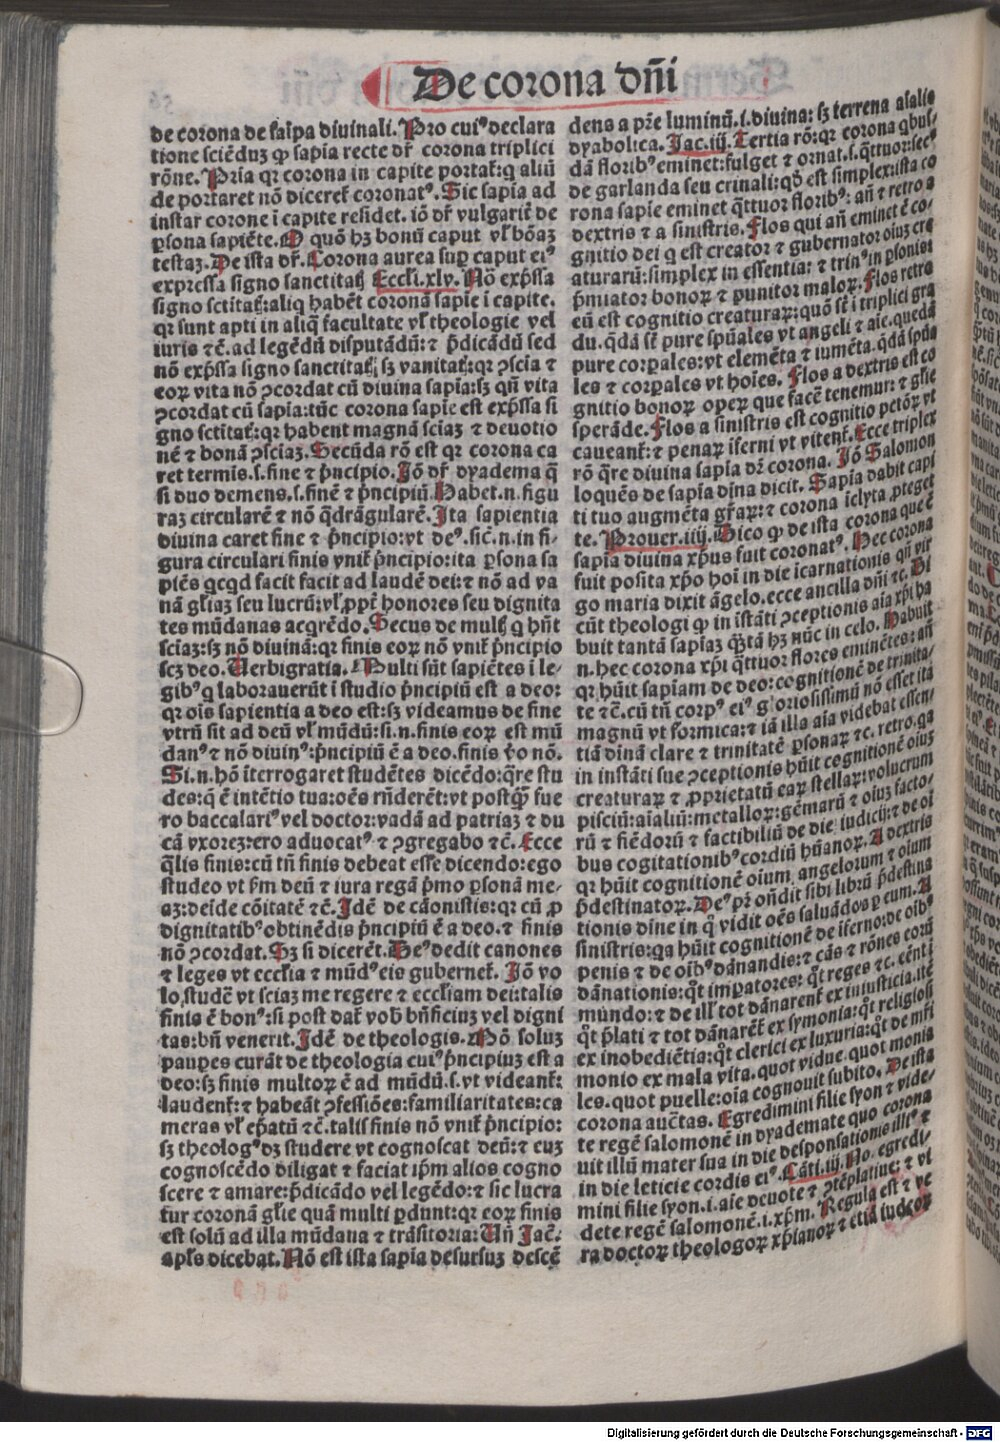 De corona dñi
de corona de saīpa diuinali. Pro cui⁹ declara
tione sciēduꝫ ꝙ sapīa recte dr̄ corona triplici
rōne. Pria qr corona in capite portat᷑: q aliū
de portaret nō diceret᷑ coronat⁹. Sic sapīa ad
instar corone ī capite residet. iō dr̄ vulgarit᷑ de
ꝑsona sapiēte. O quō hꝫ bonū caput vl̓ bōaꝫ
testaꝫ. De ista dr̄. Corona aurea suꝑ caput ei⁹
expressa signo sanctitatꝭ Eccl̓i.xlv. Nō exp̄ssa
signo sctitatꝭ: aliq habēt coronā sapīe ī capite.
qr sunt apti in aliq̄ facultate vl̓ theologie vel
iuris ⁊ c̄. ad legēdū disputādū: ⁊ p̄dicādū sed
nō exp̄ssa signo sanctitatꝭ sꝫ vanitatꝭ: qr ꝯscīa ⁊
eoꝝ vita nō ꝯcordat cū diuina sapīa: sꝫ qn̄ vita
ꝯcordat cū sapīa: tūc corona sapīe est exp̄ssa si
gno sctitatꝭ: qr habent magnā sciaꝫ ⁊ deuotio
nē ⁊ bonā ꝯsciaꝫ. Secūda rō est qr corona ca
ret termīs .s. fine ⁊ p̄ncipio. Iō dr̄ dyadema q̄
si duo demens .s. finē ⁊ p̄ncipiū. Habet .n. figu
raꝫ circularē ⁊ nō q̄drāgularē. Ita sapientia
diuina caret fine ⁊ p̄ncipio: vt de⁹. sic̄ .n. in fi-
gura circulari finis vnit᷑ p̄ncipio: ita ꝑsona sa
piēs qcqd facit facit ad laudē dei: ⁊ nō ad va
nā gl̓iaꝫ seu lucrū: vl̓ ꝓpt᷑ honores seu dignita
tes mūdanas acqrēdo. Secus de multꝭ q hn̄t
sciaꝫ: sꝫ nō diuinā: qr finis eoꝝ nō vnit᷑ p̄ncipio
scꝫ deo. Uerbigratia. Multi sūt sapiētes ī le-
gib⁹ q laborauerūt ī studio p̄ncipiū est a deo:
qr oīs sapientia a deo est: sꝫ videamus de fine
vtrū sit ad deū vl̓ mūdū: si .n. finis eoꝝ est mū
dan⁹ ⁊ nō diuin⁹: p̄ncipiū ē a deo. finis v̓o nō.
Si .n. hō īterrogaret studētes dicēdo: q̄re stu
des: q̄ ē intētio tua: oēs rn̄derēt: vt postꝙ̄ fue
ro baccalari⁹ vel doctor: vadā ad patriaꝫ ⁊ du
cā vxoreꝫ: ero aduocat⁹ ⁊ ꝯgregabo ⁊ c̄. Ecce
q̄lis finis: cū tn̄ finis debeat esse dicendo: ego
studeo vt p̄m deū ⁊ iura regā p̄mo ꝑsonā me-
aꝫ: deīde cōitatē ⁊ c̄. Idē de cāonistis: qr cū ꝓ
dignitatib⁹ obtinēdis p̄ncipiū ē a deo. ⁊ finis
nō ꝯcordat. Sꝫ si dicerēt. De⁹ dedit canones
⁊ leges vt eccl̓ia ⁊ mūd⁹ eis gubernet᷑. Iō vo
lo studē vt sciaꝫ me regere ⁊ eccl̓iam dei: talis
finis ē bon⁹: si post dat᷑ vob̄ bn̄ficiuꝫ vel digni
tas: bn̄ venerit. Idē de theologis. Nō soluꝫ
pauꝑes curāt de theologia cui⁹ p̄ncipiuꝫ est a
deo: sꝫ finis multoꝝ ē ad mūdū .s. vt videant᷑:
laudent᷑: ⁊ habeāt ꝯfessiōes: familiaritates: ca
meras vl̓ ep̄atū ⁊ c̄. talis finis nō vnit᷑ p̄ncipio:
sꝫ theolog⁹ dꝫ studere vt cognoscat deū: ⁊ euꝫ
cognoscēdo diligat ⁊ faciat ip̄m alios cogno
scere ⁊ amare: p̄dicādo vel legēdo: ⁊ sic lucra
tur coronā gl̓ie quā multi ꝑdunt: qr eoꝝ finis
est solū ad illa mūdana ⁊ trāsitoria: Un̄ Iac̄.
apl̓s dicebat. Nō est ista sapīa desursuꝫ descē
dens a pr̄e luminū .i. diuina: sꝫ terrena aīalis
dyabolica. Jac.iij. Tertia rō: qr corona qbus-
dā florib⁹ eminet: fulget ⁊ ornat .s. q̄ttuor: sec⁹
de garlanda seu crinali: qd̄ est simplex: ista co
rona sapīe eminet q̄ttuor florib⁹: añ ⁊ retro a
dextris ⁊ a sinistris. Flos qui añ eminet ē co-
gnitio dei q est creator ⁊ gubernator oiuꝫ cre
aturarū: simplex in essentia: ⁊ trin⁹ in ꝑsonis:
p̄miator bonoꝝ ⁊ punitor maloꝝ. Flos retro
eū est cognitio creaturaꝝ: quō sc̄t ī triplici gra
du. q̄dā st̄ pure spūales vt angeli ⁊ aīe. quedā
pure corꝑales: vt elemēta ⁊ iumēta. q̄dā spūa
les ⁊ corꝑales vt hoīes. Flos a dextris est co
gnitio bonoꝝ oꝑeꝝ que facē tenemur: ⁊ gl̓ie
speràde. Flos a sinistris est cognitio pctōꝝ vt
caueant᷑: ⁊ penaꝝ īferni vt vitent᷑. Ecce triplex
rō q̄re diuina sapīa dr̄ corona. Iō Salomon
loquēs de sapīa dīna dicit. Sapīa dabit capi
ti tuo augmēta gr̄aꝝ: ⁊ corona īclyta ꝓteget
te. Prouer.iiij. Dico ꝙ de ista corona que ē
sapīa diuina xp̄us fuit coronat⁹. Hec corona
fuit posita xp̄o hoī in die īcarnationis qn̄ vir
go maria dixit āgelo. ecce ancilla dn̄i ⁊c. Di
cūt theologi ꝙ in īstāti ꝯceptionis aīa xp̄i ha
buit tantā sapīaꝫ q̄tā hꝫ nūc in celo. Habuit
.n. hec corona xp̄i q̄ttuor flores eminētes: añ
qr hūit sapīam de deo: cognitionē de trinita-
te ⁊ c̄. cū tn̄ corp⁹ ei⁹ gl̓oriosissimū nō esset ita
magnū vt formica: ⁊ iā illa aīa videbat essen-
tiā dīnā clare ⁊ trinitatē ꝑsonaꝝ ⁊c. retro. qa
in instāti sue ꝯceptionis hūit cognitionē oiuꝫ
creaturaꝝ ⁊ ꝓprietatū eaꝝ stellaꝝ: volucrum
pisciū: aīaliū: metalloꝝ: gēmarū ⁊ oiuꝫ facto-
rū ⁊ fiēdorū ⁊ factibiliū de die iudicij: ⁊ de oī
bus cogitationib⁹ cordiū hūanoꝝ. A dextris
qr hūit cognitionē oium angelorum ⁊ oium
p̄destinatoꝝ. De⁹ pr̄ oñdit sibi librū p̄destina
tionis dīne in q̄ vidit oēs saluādos ꝑ eum. A
sinistris: qa hūit cognitionē de īferno: de oīb⁹
penis ⁊ de oīb⁹ dānandis: ⁊ cās ⁊ rōnes eorū
dānationis: q̄t impatores: q̄t reges ⁊c. cēnti
mundo: ⁊ de ill̓ tot dānarent᷑ ex iniusticia. itē
q̄t p̄lati ⁊ tot dānarēt᷑ ex symonia: q̄t religiosi
ex inobediētia: q̄t clerici ex luxuria: q̄t de mr̄i
monio ex mala vita. quot vidue. quot monia
les. quot puelle: oīa cognouit subito. De ista
corona auc̄tas. Egredimini filie syon ⁊ vide-
te regē salomonē in dyademate quo corona
uit illū mater sua in die desponsationis illi⁹ ⁊
in die leticie cordis ei⁹. Cāti.iij. No. egredi-
mini filie syon .i. aīe deuote ⁊ ꝯtēplatiue: ⁊ vi
dete regē salomonē .i. xp̄m. Regula est ⁊ ve
ra doctoꝝ theologoꝝ xp̄ianoꝝ ⁊ etiā iudeoꝝ
Digitalisierung gefördert durch die Deutsche Forschungsgemeinschaft - DFG